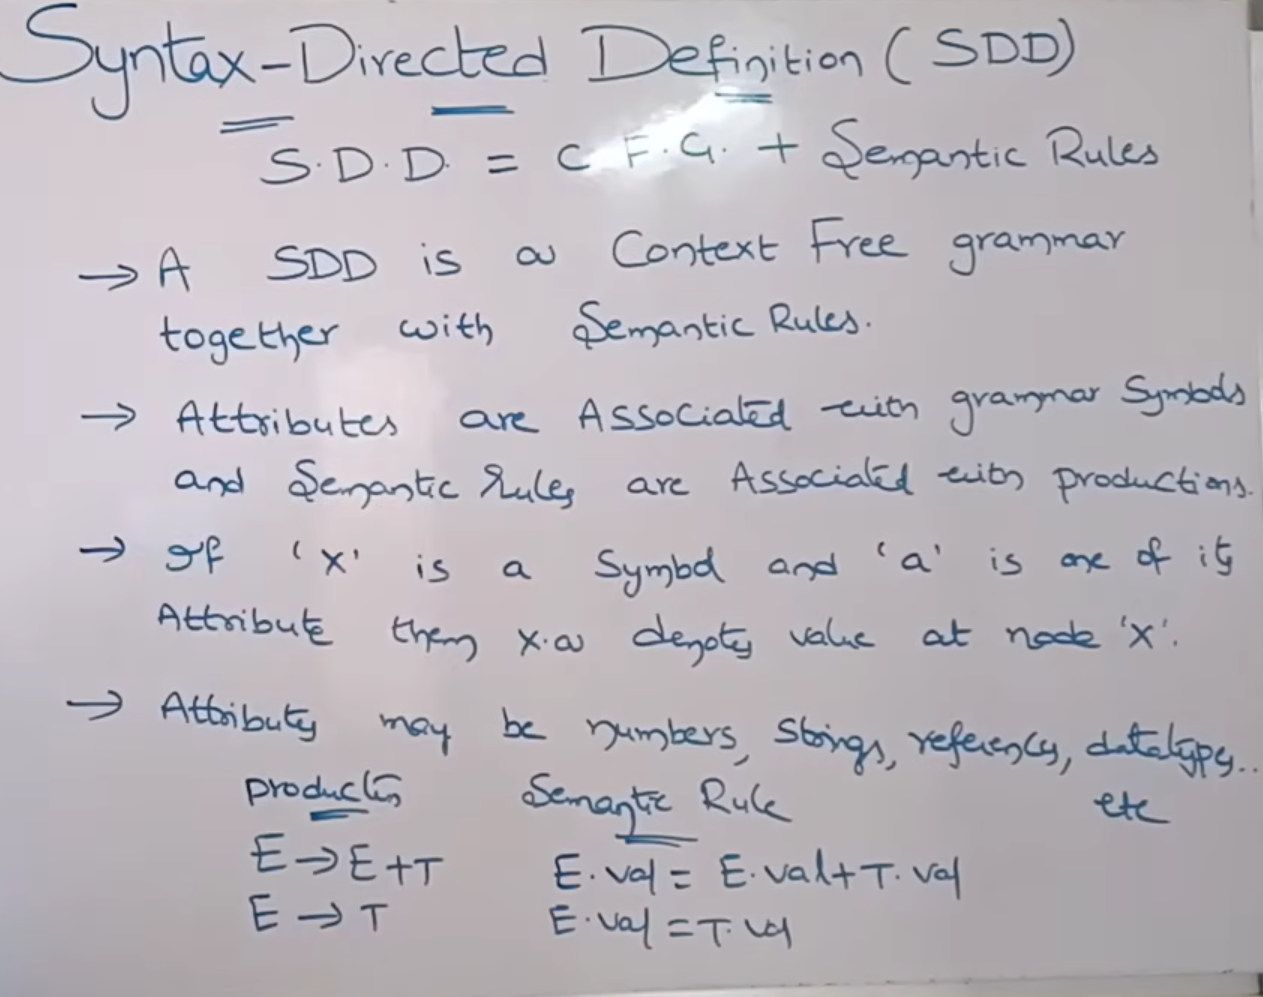 Syntax-Directed Definition (SDD)
S.D.D. = C F.G. + Semantic Rules
→ A SDD is a Context Free grammar
together with Semantic Rules.
→ Attributes are Associated with grammar Symbols
and Semantic Rules are Associated with productions.
→ If 'x' is a Symbol and 'a' is one of its
Attribute then x.a denotes value at node 'x'.
→ Attributes may be numbers, Strings, references, datatypes..
etc
production Semantic Rule
E → E+T E.val = E.val+T.val
E → T E.val = T.val